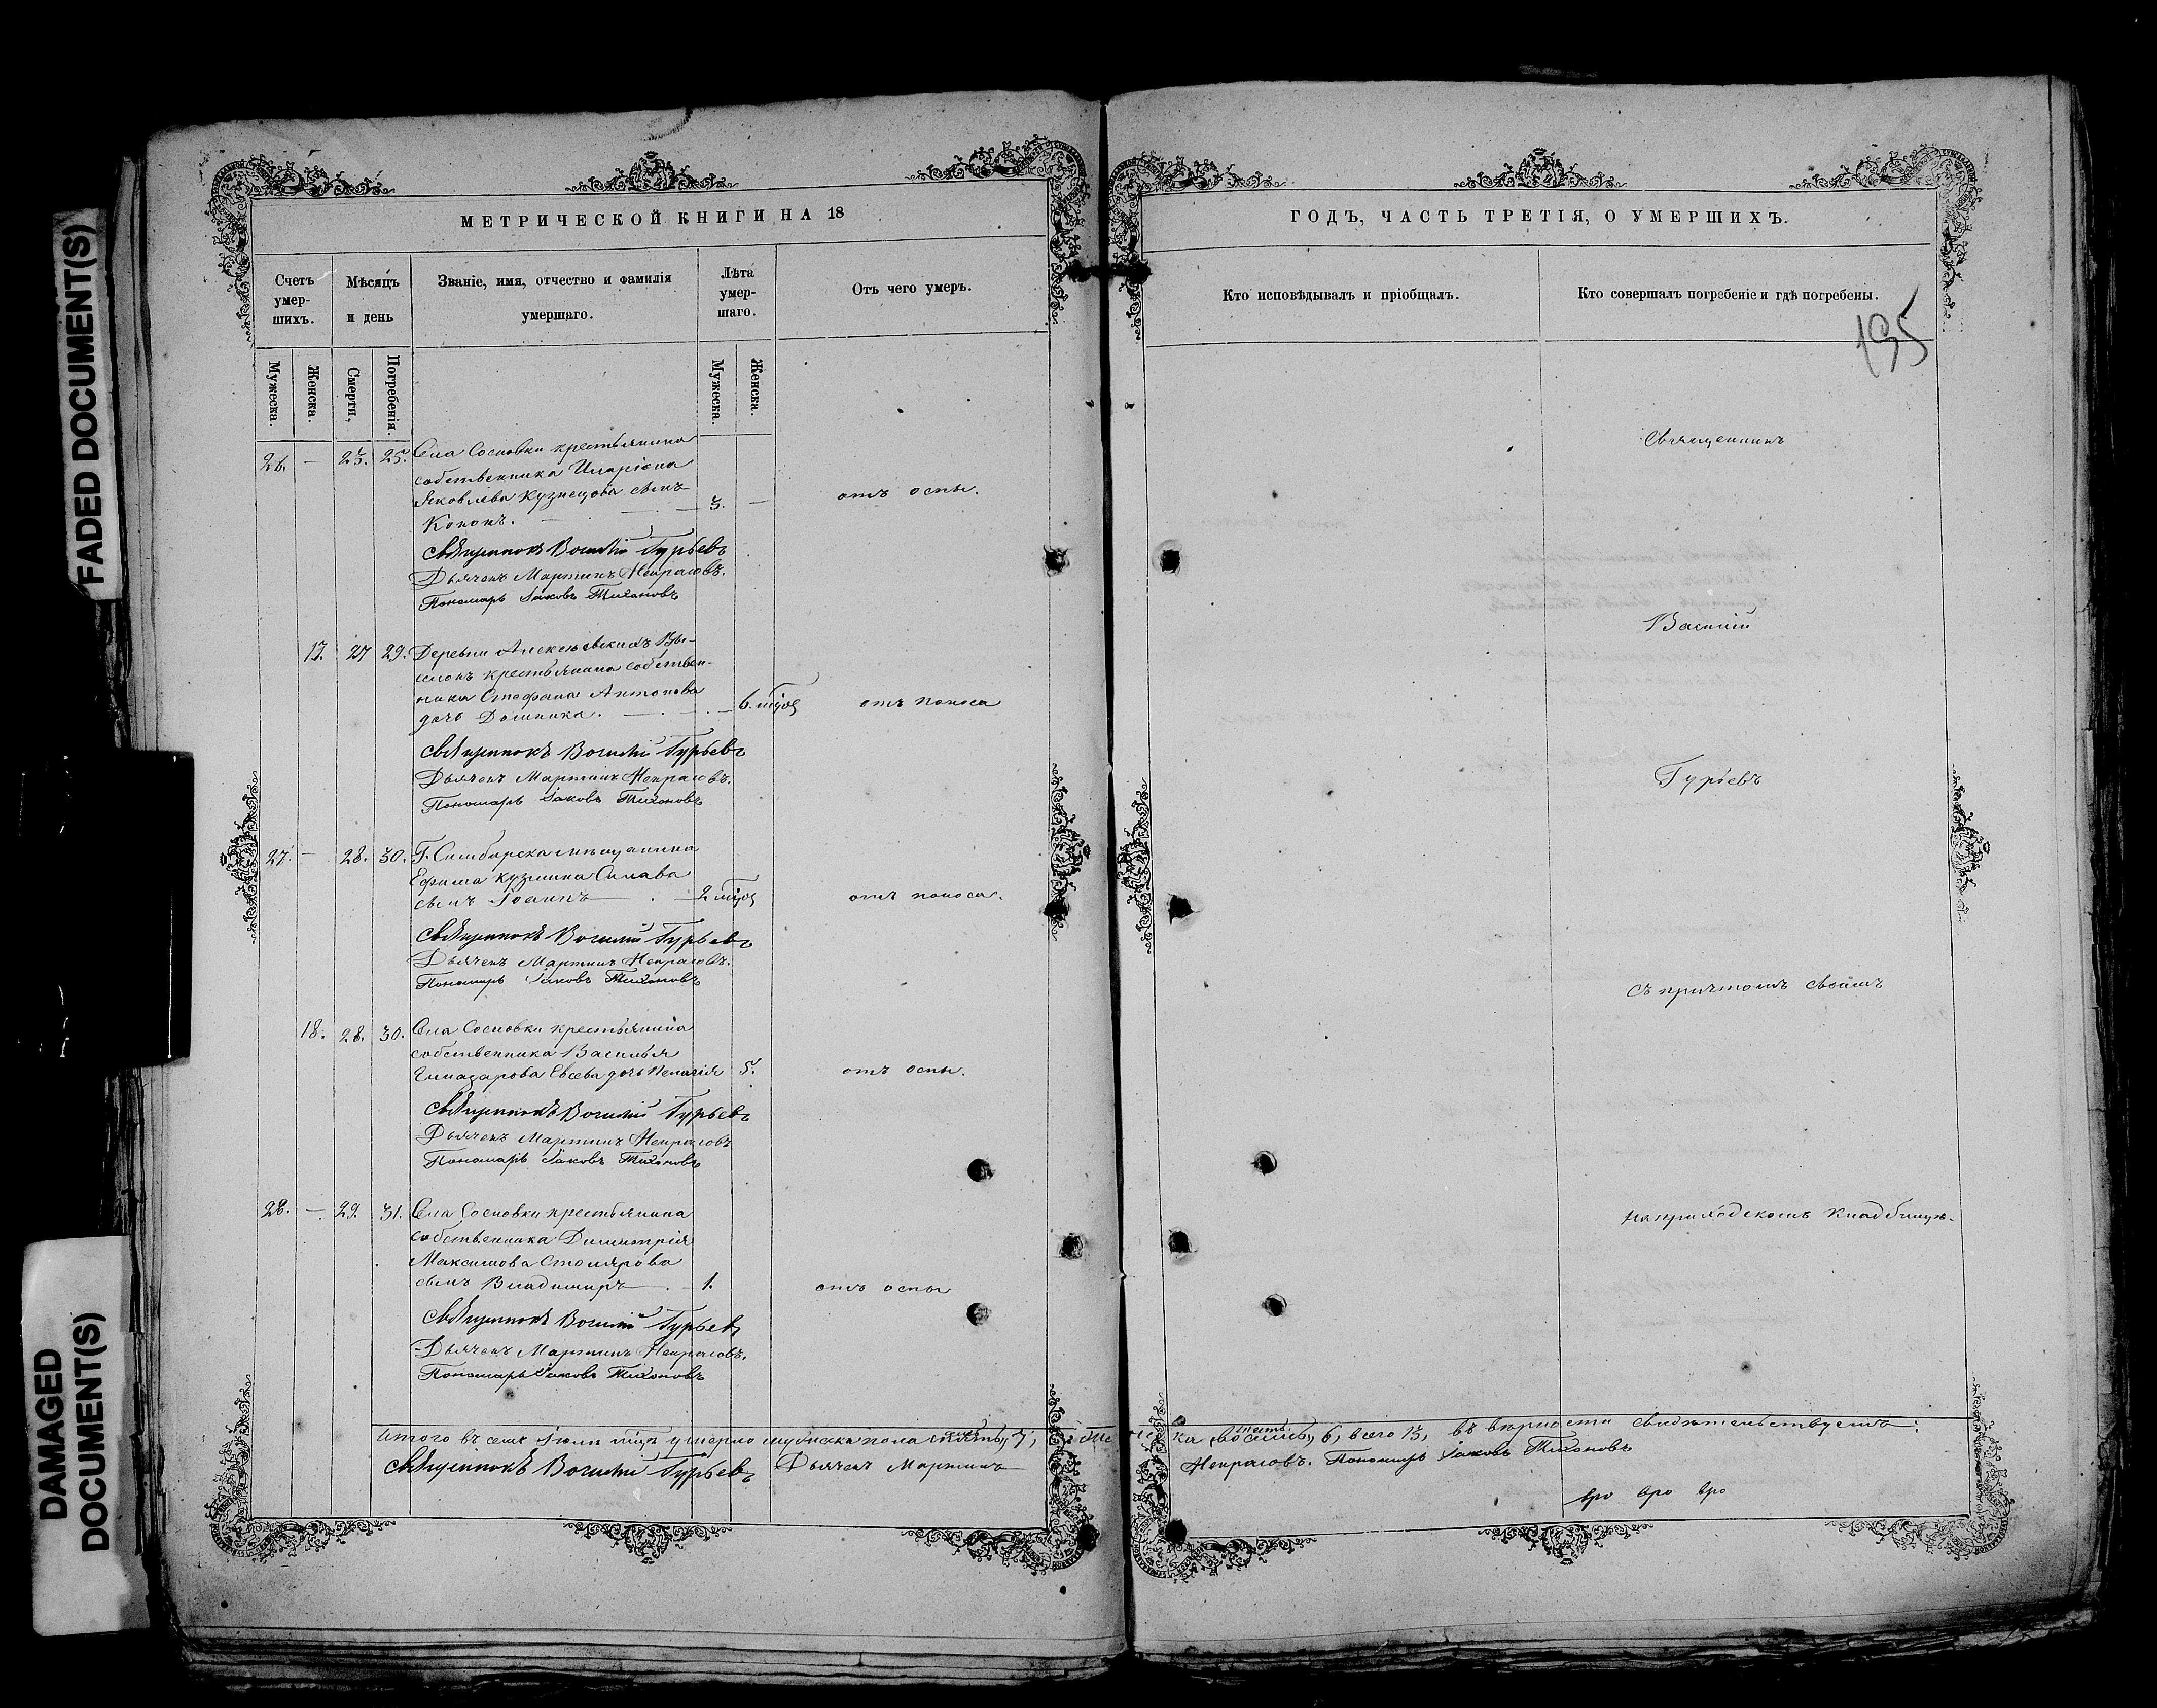 FADED DOCUMENT(S)
DAMAGED
DOCUMENT(S)
МЕТРИЧЕСКОЙ КНИГИ НА 18
Счетъ умер-шихъ.
Мѣсяцъ и день
Званіе, имя, отчество и фамилія умершаго.
Лѣта умер-шаго.
Отъ чего умеръ.
Мужеска.
Женска.
Смерти,
Погребенія.
Мужеска.
Женска.
26. — 23. 25. Села Сосновки крестьянина
собственника Иларіона
Яковлева Кузнецова сынъ
Кононъ. — 3. — отъ оспы.
Священникъ Василій Гурьевъ
Дьячекъ Мартинъ Некрасовъ.
Пономарь Іаковъ Тихоновъ
17. 27 29. Деревни Алексѣевскихъ Вы-
селокъ крестьянина собствен-
ника Стефана Антонова
дочь Домника. — 6. отъ поноса
Священникъ Василій Гурьевъ
Дьячекъ Мартинъ Некрасовъ.
Пономарь Іаковъ Тихоновъ
27. — 28. 30. Г. Симбирска мѣщанина
Ефима Кузмина
сынъ Іоаннъ — 2 отъ поноса.
Священникъ Василій Гурьевъ
Дьячекъ Мартинъ Некрасовъ.
Пономарь Іаковъ Тихоновъ
18. 28. 30. Села Сосновки крестьянина
собственника Василья
дочь Пелагія 5. отъ оспы.
Священникъ Василій Гурьевъ
Дьячекъ Мартинъ Некрасовъ
Пономарь Іаковъ Тихоновъ
28. — 29. 31. Села Сосновки крестьянина
собственника Димитрія
Максимова Столярова
сынъ Владимиръ — 1. отъ оспы
Священникъ Василій Гурьевъ
Дьячекъ Мартинъ Некрасовъ.
Пономарь Іаковъ Тихоновъ
Итого въ семъ Іюлѣ умерло мужеска пола 7,
Священникъ Василій Гурьевъ Дьячекъ Мартинъ
ГОДЪ, ЧАСТЬ ТРЕТІЯ, О УМЕРШИХЪ.
Кто исповѣдывалъ и пріобщалъ.
Кто совершалъ погребеніе и гдѣ погребены.
195
Священникъ
Василій
Гурьевъ
съ причтомъ своимъ
на приходскомъ кладбищѣ.
шесть
6, всего 13, въ вѣрности свидѣтельствуемъ:
Некрасовъ. Пономарь Іаковъ Тихоновъ